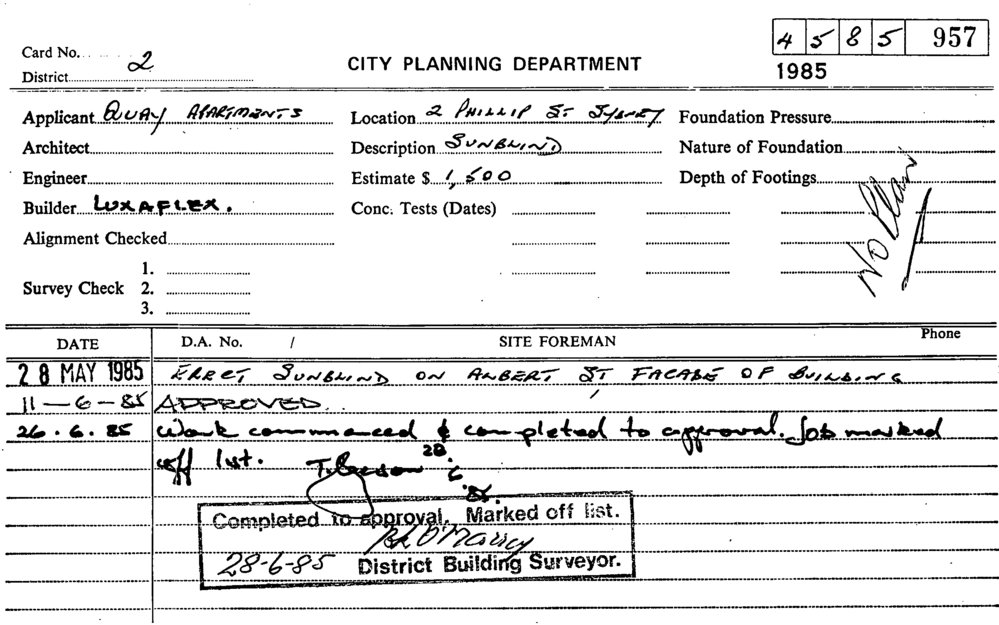 4 5 8 5 957
Card No. 2
CITY PLANNING DEPARTMENT
1985
District
Applicant QUAY APARTMENTS Location 2 PHILLIP ST SYDNEY Foundation Pressure
Architect Description SUNBLIND Nature of Foundation
Engineer Estimate $ 1,500 Depth of Footings
Builder LUXAFLEX. Conc. Tests (Dates)
No Plan
Alignment Checked
1.
Survey Check 2.
3.
DATE D.A. No. / SITE FOREMAN Phone
28 MAY 1985 ERECT SUNBLIND ON ALBERT ST FACADE OF BUILDING
11-6-85 APPROVED.
26.6.85 Work commenced & completed to approval. Job marked
off list. 28.6.85.
Completed to approval. Marked off list.
28-6-85 District Building Surveyor.